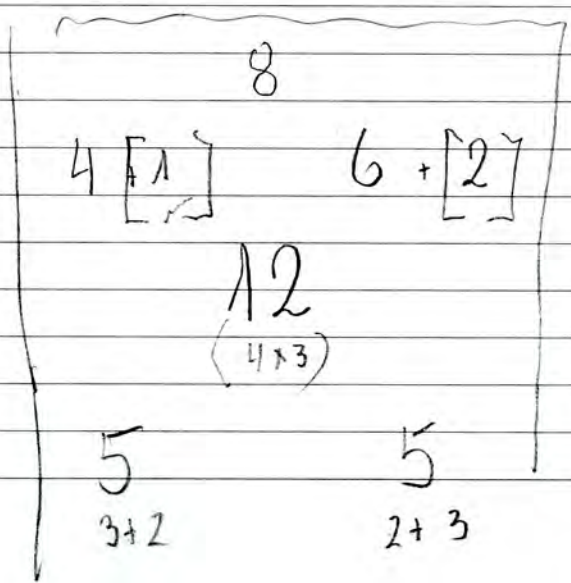 8
4 [+1] 6 + [2]
12
(4×3)
5 5
3+2 2+3